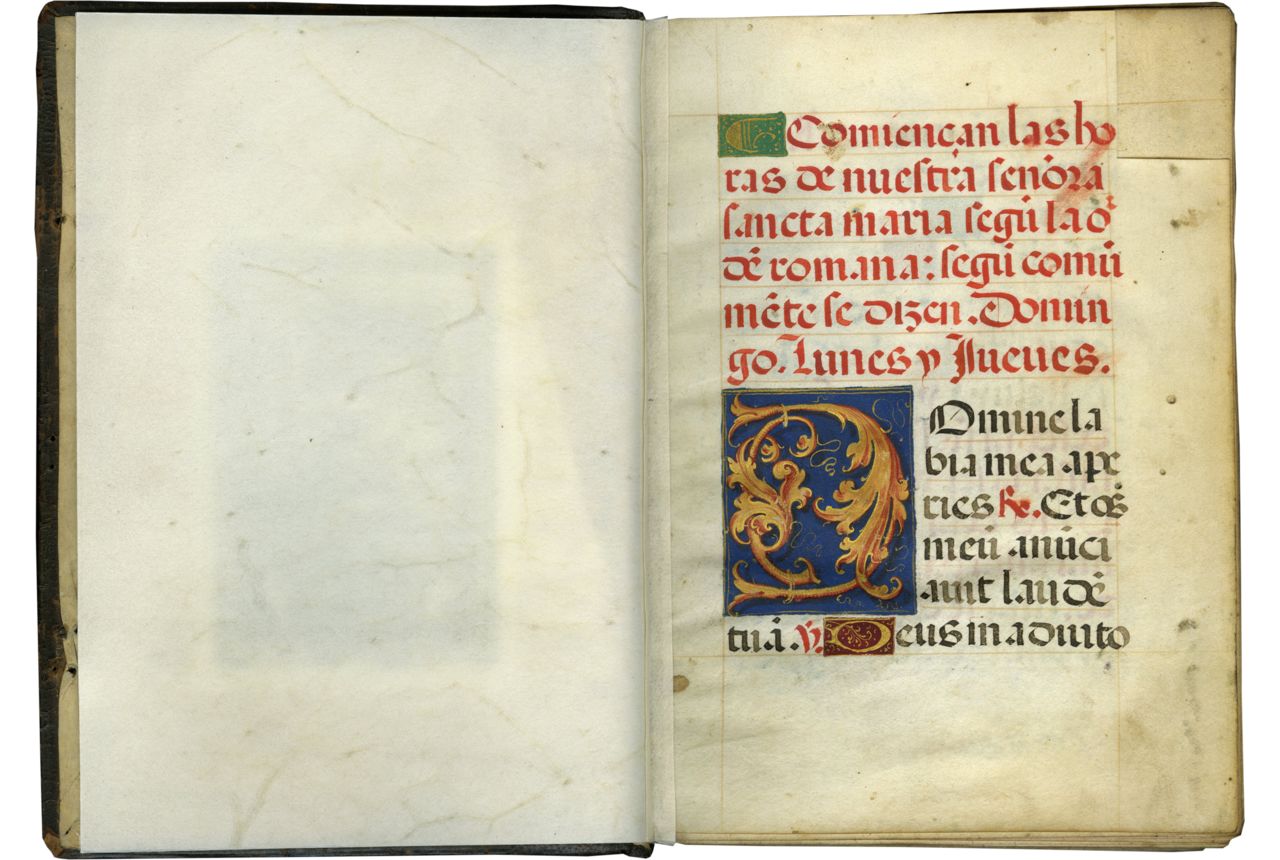 Comiençan las ho
ras de nuestra señora
sancta maria segũ la or
dẽ romana: segũ comũ
mẽte se dizen. Domin
go. Lunes y Jueues.
Domine la
bia mea ape
ries ℟. Et os
meũ anũci
auit laudẽ
tuã. ℣. Deus in adiuto